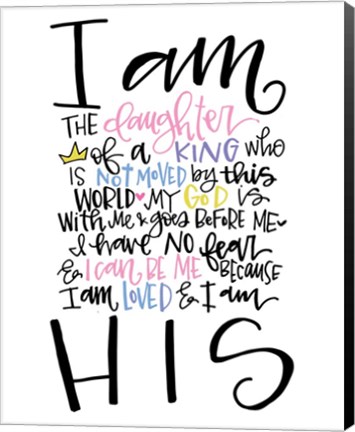 I am
THE daughter
of a KING who
IS NOT MOVED by this
WORLD MY GOD is
with me & goes BeFORE ME
I have NO fear
& I can BE ME BECAUSE
I am LOVED & I am
HIS